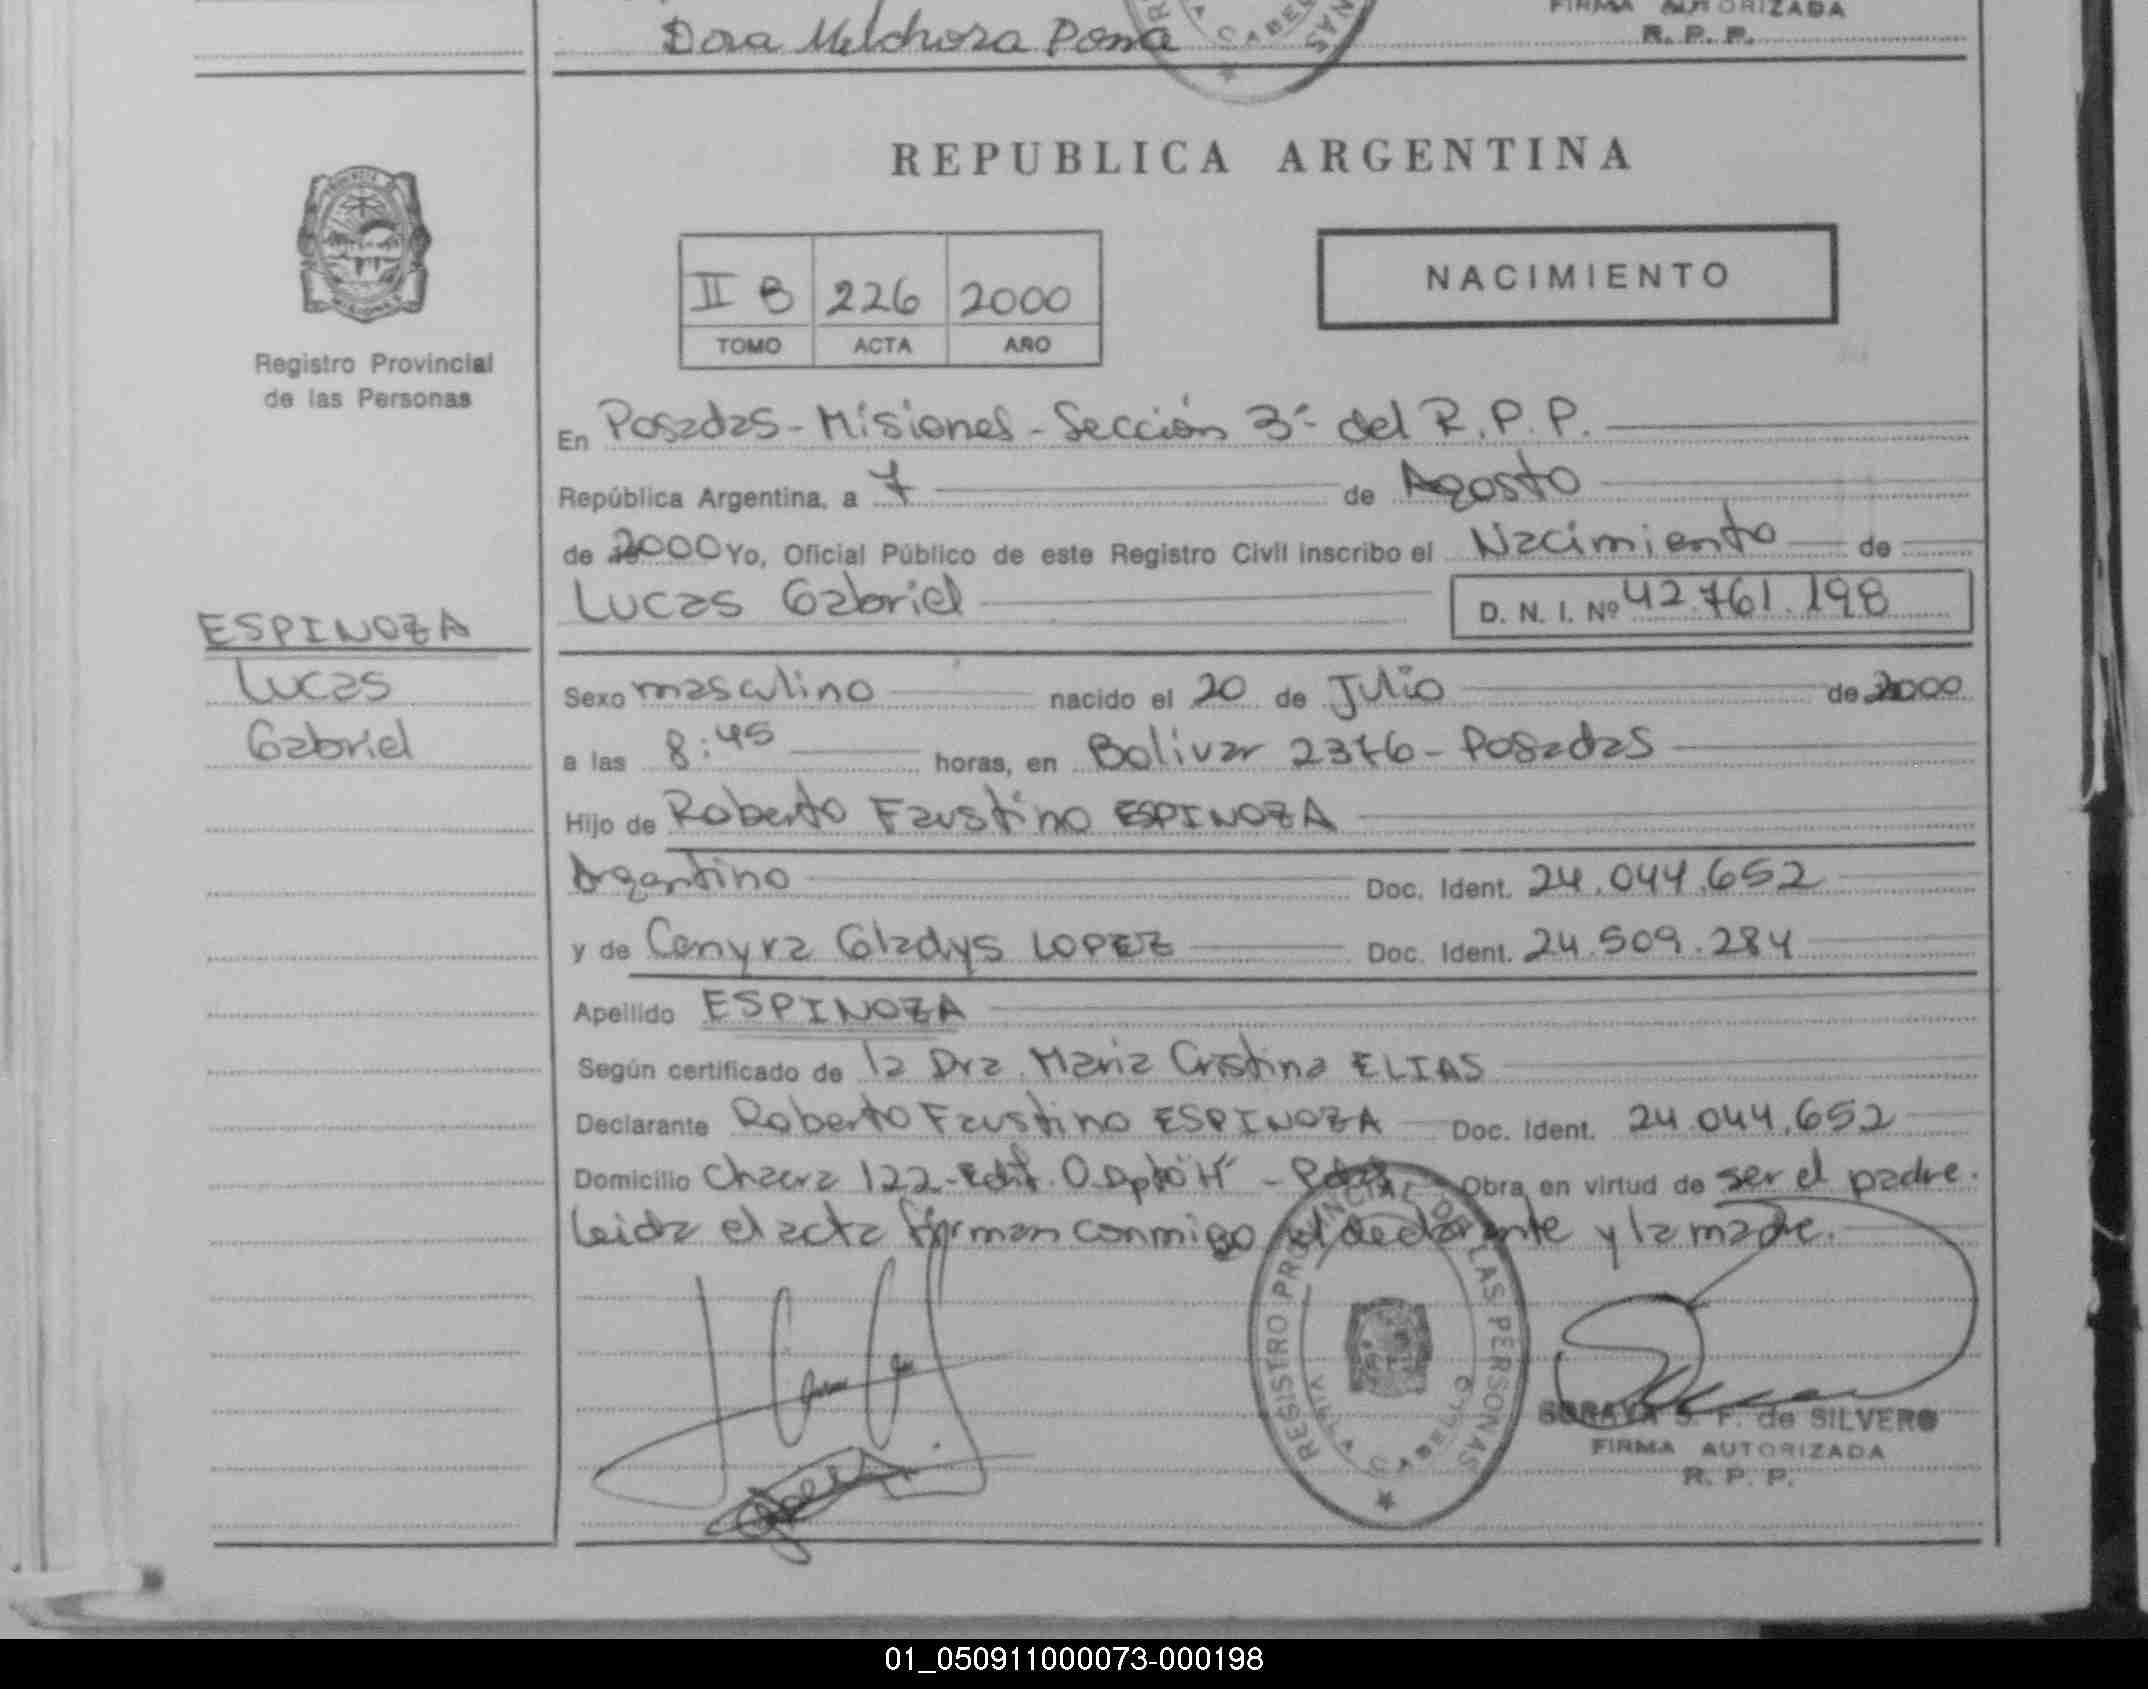 Dora Melchora
FIRMA AUTORIZADA
R. P. P.
REPUBLICA ARGENTINA
II B 226 2000
TOMO ACTA AÑO
NACIMIENTO
Registro Provincial
de las Personas
En Posadas - Misiones - Sección 3ª del R.P.P.
República Argentina, a 7 de Agosto
de 2000 Yo, Oficial Público de este Registro Civil inscribo el Nacimiento de
Lucas Gabriel D. N. I. Nº 42.761.198
ESPINOZA
Lucas
Gabriel
Sexo masculino nacido el 20 de Julio de 2000
a las 8:45 horas, en Bolivar 2376 - Posadas
Hijo de Roberto Faustino ESPINOZA
Argentino Doc. Ident. 24.044.652
y de Cenyra Gladys LOPEZ Doc. Ident. 24.509.284
Apellido ESPINOZA
Según certificado de la Dra. Maria Cristina ELIAS
Declarante Roberto Faustino ESPINOZA Doc. Ident. 24.044.652
Domicilio Chacra 122 - Edif. O Dpto "H" - Pdas Obra en virtud de ser el padre.
Leida el acta firman conmigo el declarante y la madre.
REGISTRO PROVINCIAL DE LAS PERSONAS
VILLA CABELLO
SORAYA S. F. de SILVERO
FIRMA AUTORIZADA
R. P. P.
01_050911000073-000198